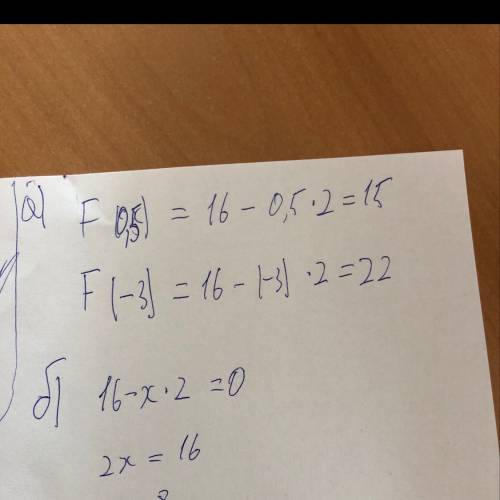 а) F(0,5) = 16 - 0,5·2 = 15
F(-3) = 16 - (-3)·2 = 22
б) 16 - x·2 = 0
2x = 16